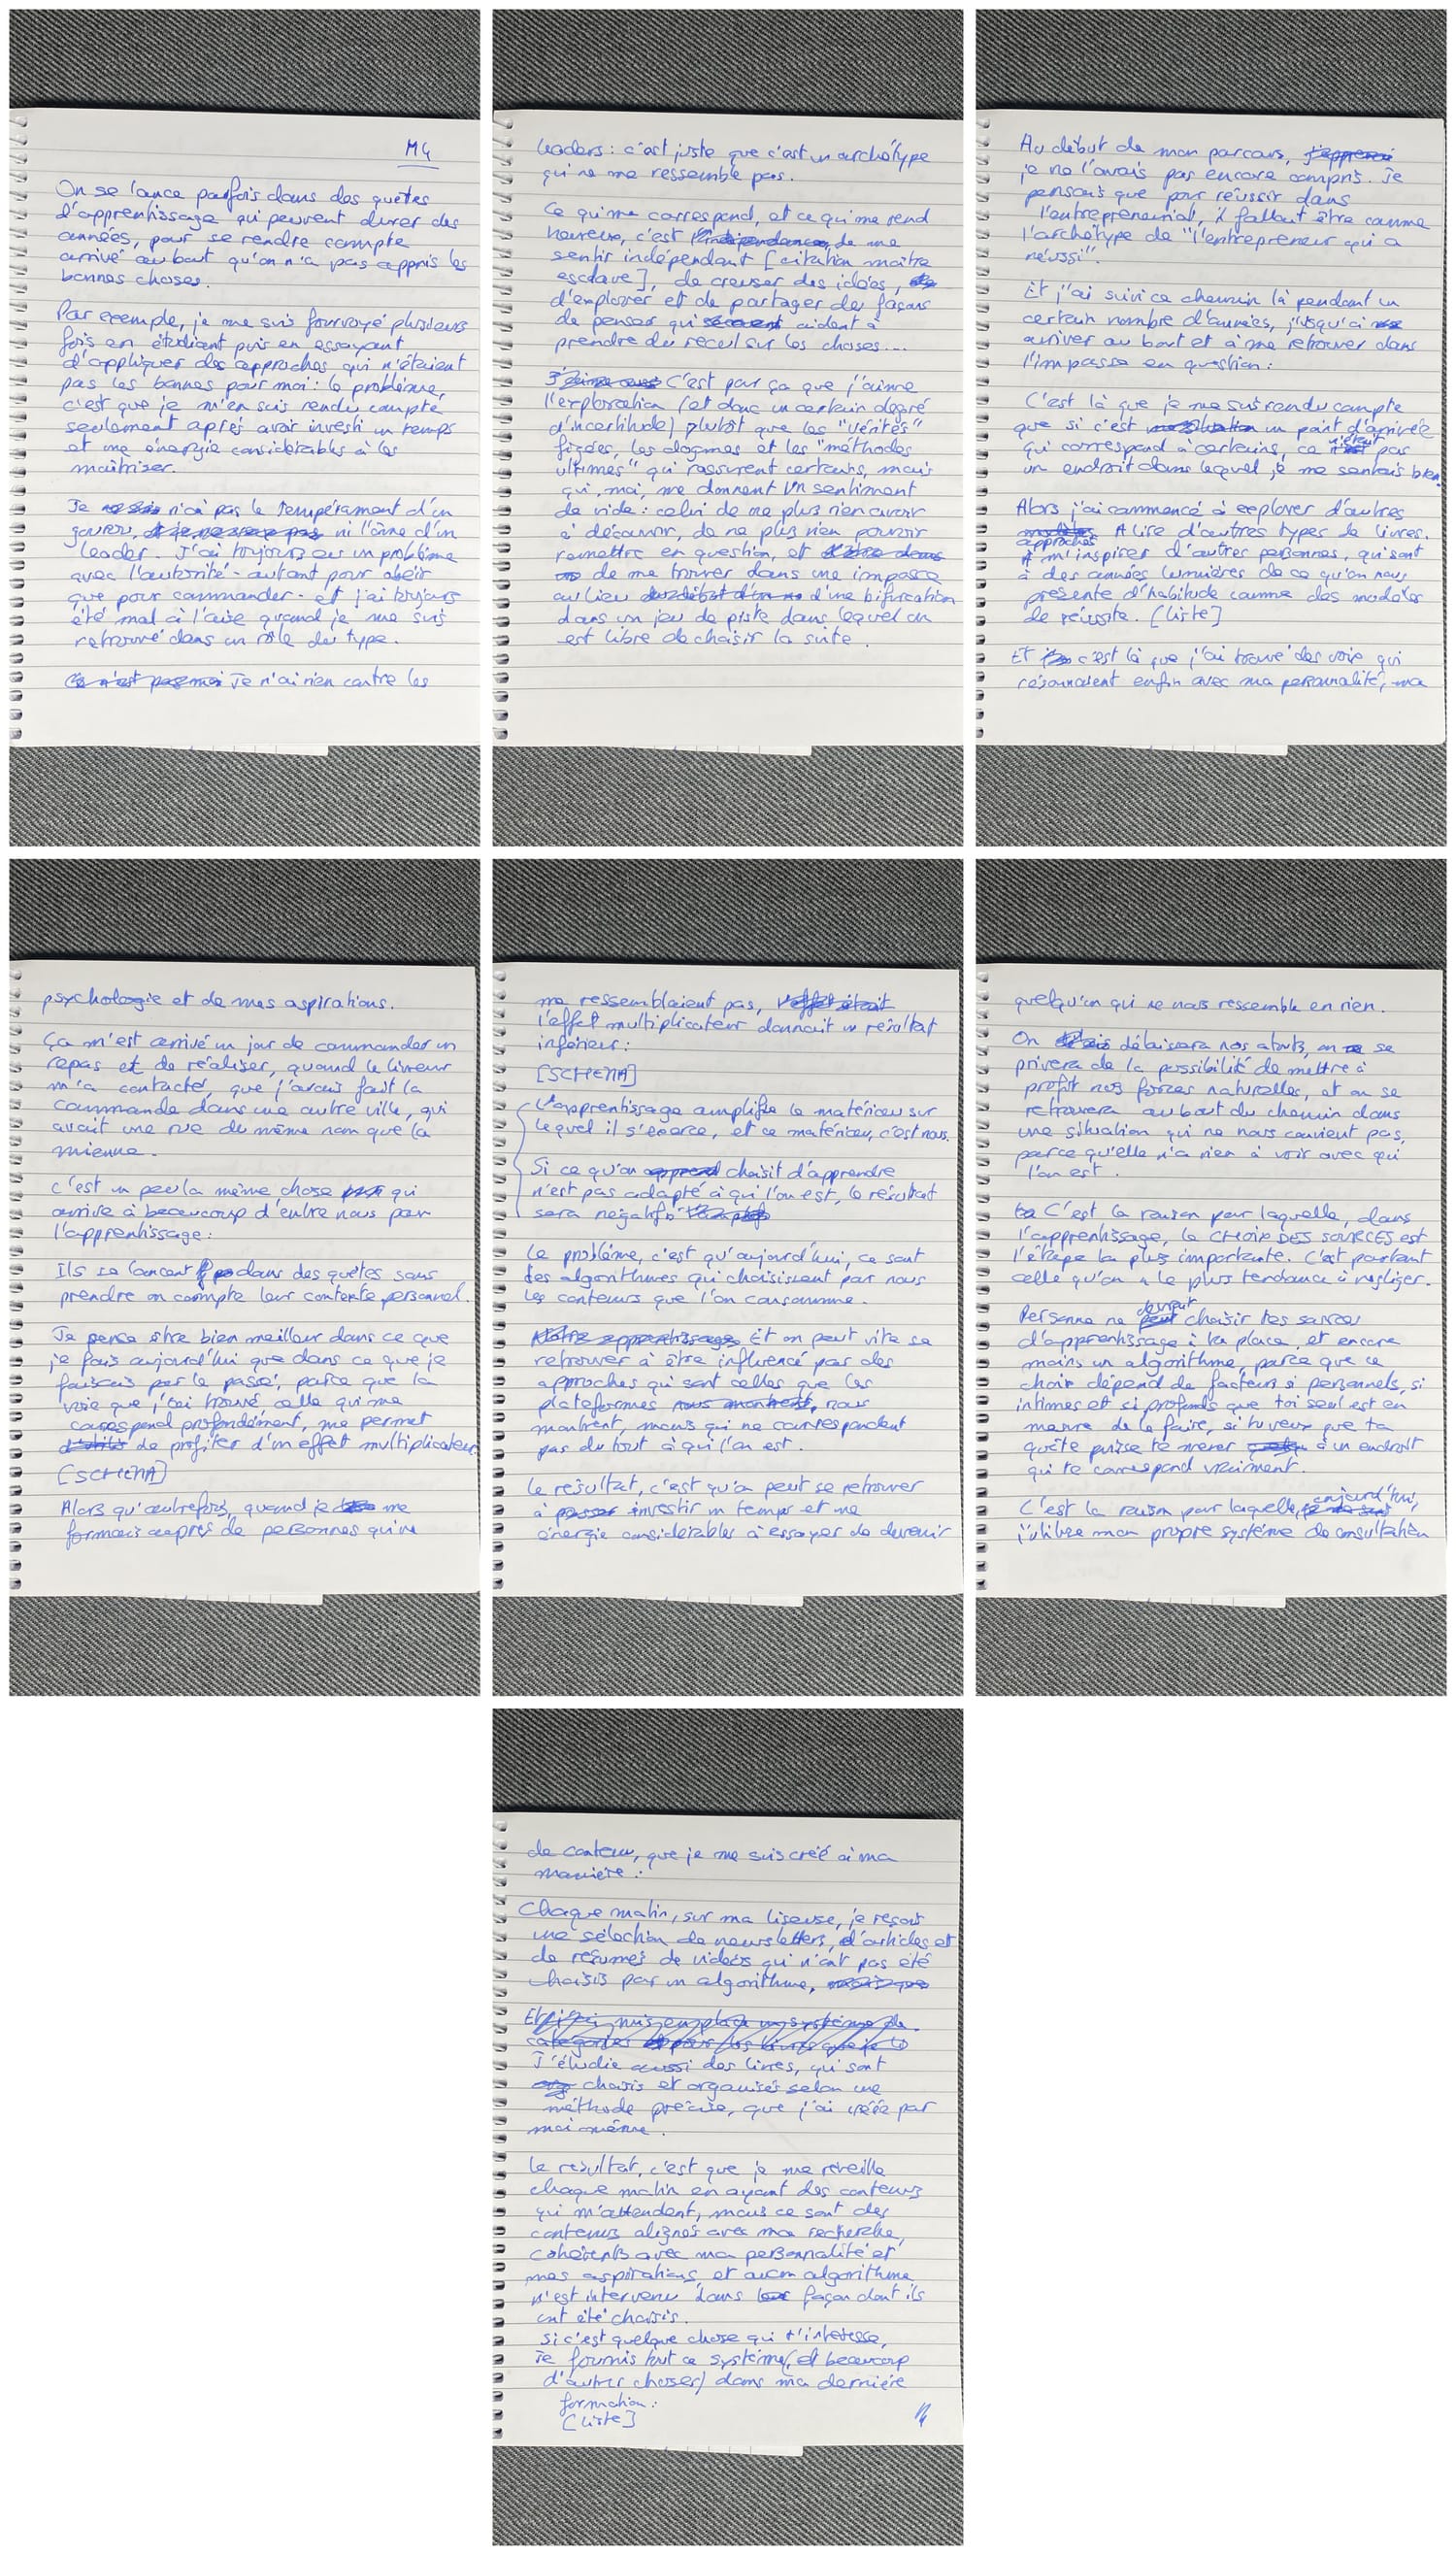 M4
On se lance parfois dans des quêtes
d'apprentissage qui peuvent durer des
années, pour se rendre compte
arrivé au bout qu'on n'a pas appris les
bonnes choses.
Par exemple, je me suis fourvoyé plusieurs
fois en étudiant puis en essayant
d'appliquer des approches qui n'étaient
pas les bonnes pour moi : le problème,
c'est que je m'en suis rendu compte
seulement après avoir investi un temps
et une énergie considérables à les
maîtriser.
Je n'ai pas le tempérament d'un
gourou, ni l'âme d'un
leader. J'ai toujours eu un problème
avec l'autorité - autant pour obéir
que pour commander - et j'ai toujours
été mal à l'aise quand je me suis
retrouvé dans un rôle du type.
Ce n'est pas moi Je n'ai rien contre les
leaders : c'est juste que c'est un archétype
qui ne me ressemble pas.
Ce qui me correspond, et ce qui me rend
heureux, c'est l'indépendance, de me
sentir indépendant [citation maître
esclave], de creuser des idées,
d'explorer et de partager des façons
de penser qui aident à
prendre du recul sur les choses...
J'aime aussi C'est par ça que j'aime
l'exploration (et donc un certain degré
d'incertitude) plutôt que les "vérités"
figées, les dogmes et les "méthodes
ultimes" qui rassurent certains, mais
qui, moi, me donnent un sentiment
de vide : celui de ne plus rien avoir
à découvrir, de ne plus rien pouvoir
remettre en question, et d'être dans
de me trouver dans une impasse
au lieu du début d'un d'une bifurcation
dans un jeu de piste dans lequel on
est libre de choisir la suite.
Au début de mon parcours,
je ne l'avais pas encore compris. Je
pensais que pour réussir dans
l'entrepreneuriat, il fallait être comme
l'archétype de "l'entrepreneur qui a
réussi".
Et j'ai suivi ce chemin là pendant un
certain nombre d'années, jusqu'à
arriver au bout et à me retrouver dans
l'impasse en question :
C'est là que je me suis rendu compte
que si c'est un point d'arrivée
qui correspond à certains, ce n'était pas
un endroit dans lequel je me sentais bien.
Alors j'ai commencé à explorer d'autres
approches A lire d'autres types de livres.
A m'inspirer d'autres personnes, qui sont
à des années lumières de ce qu'on nous
présente d'habitude comme des modèles
de réussite. [Liste]
Et c'est là que j'ai trouvé des voix qui
résonnaient enfin avec ma personnalité, ma
psychologie et de mes aspirations.
Ça m'est arrivé un jour de commander un
repas et de réaliser, quand le livreur
m'a contacté, que j'avais fait la
commande dans une autre ville, qui
avait une rue du même nom que la
mienne.
C'est un peu la même chose qui
arrive à beaucoup d'entre nous par
l'apprentissage :
Ils se lancent dans des quêtes sans
prendre en compte leur contexte personnel.
Je pense être bien meilleur dans ce que
je fais aujourd'hui que dans ce que je
faisais par le passé, parce que la
voie que j'ai trouvé, celle qui me
correspond profondément, me permet
de profiter d'un effet multiplicateur
[SCHEMA]
Alors qu'autrefois, quand je me
formais auprès de personnes qui ne
me ressemblaient pas, l'effet était
l'effet multiplicateur donnait un résultat
inférieur :
[SCHEMA]
L'apprentissage amplifie le matériau sur
lequel il s'exerce, et ce matériau, c'est nous.
Si ce qu'on apprend choisit d'apprendre
n'est pas adapté à qui l'on est, le résultat
sera négatif.
Le problème, c'est qu'aujourd'hui, ce sont
des algorithmes qui choisissent par nous
les contenus que l'on consomme.
Notre apprentissage Et on peut vite se
retrouver à être influencé par des
approches qui sont celles que les
plateformes nous montrent, nous
montrent, mais qui ne correspondent
pas du tout à qui l'on est.
Le résultat, c'est qu'on peut se retrouver
à passer investir un temps et une
énergie considérables à essayer de devenir
quelqu'un qui ne nous ressemble en rien.
On délaissera nos atouts, on se
privera de la possibilité de mettre à
profit nos forces naturelles, et on se
retrouvera au bout du chemin dans
une situation qui ne nous convient pas,
parce qu'elle n'a rien à voir avec qui
l'on est.
C'est la raison pour laquelle, dans
l'apprentissage, le CHOIX DES SOURCES est
l'étape la plus importante. C'est pourtant
celle qu'on a le plus tendance à négliger.
Personne ne peut devrait choisir tes sources
d'apprentissage à ta place, et encore
moins un algorithme, parce que ce
choix dépend de facteurs si personnels, si
intimes et si profonds que toi seul est en
mesure de le faire, si tu veux que ta
quête puisse te mener à un endroit
qui te correspond vraiment.
C'est la raison pour laquelle, aujourd'hui,
j'utilise mon propre système de consultation
de contenu, que je me suis créé à ma
manière :
Chaque matin, sur ma liseuse, je reçois
une sélection de newsletters, d'articles et
de résumés de vidéos qui n'ont pas été
choisis par un algorithme,
Et j'ai mis en place un système de
catégories pour les livres que je
J'étudie aussi des livres, qui sont
choisis et organisés selon une
méthode précise, que j'ai créée par
moi même.
Le résultat, c'est que je me réveille
chaque matin en ayant des contenus
qui m'attendent, mais ce sont des
contenus alignés avec ma recherche,
cohérents avec ma personnalité et
mes aspirations, et aucun algorithme
n'est intervenu dans la façon dont ils
ont été choisis.
Si c'est quelque chose qui t'intéresse,
Je fournis tout ce système (et beaucoup
d'autres choses) dans ma dernière
formation :
[Liste]